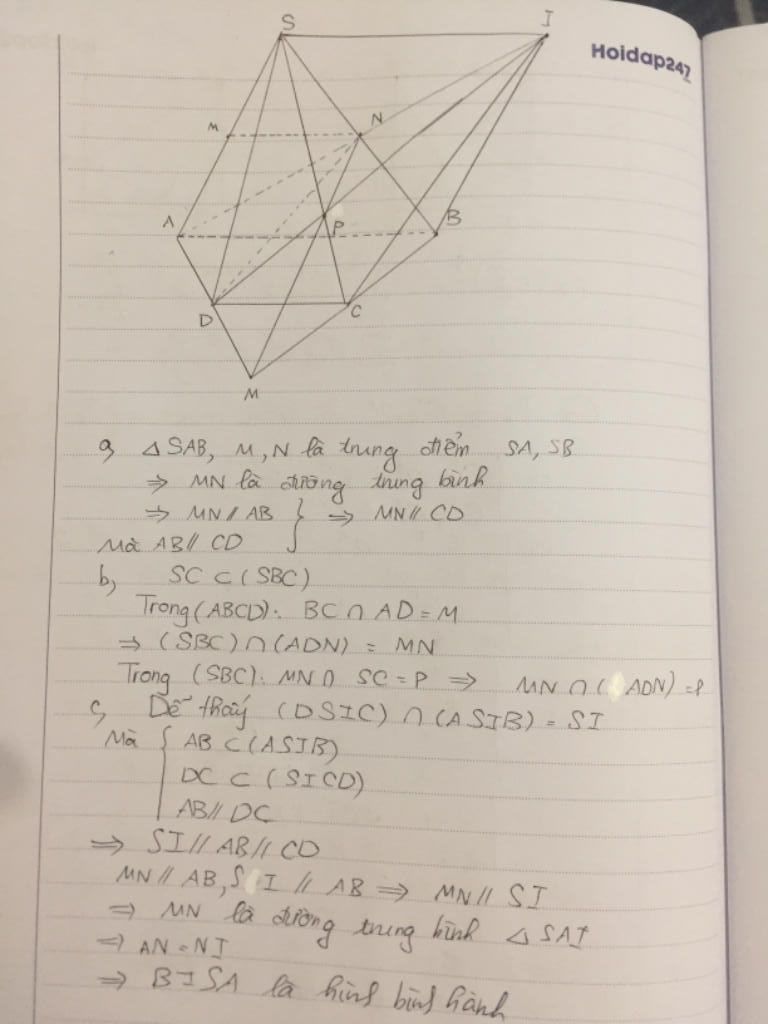 S
I
Hoidap247
M
N
A
P
B
D
C
M
a, △SAB, M, N là trung điểm SA, SB
⇒ MN là đường trung bình
⇒ MN // AB } ⇒ MN // CD
Mà AB // CD
b, SC ⊂ (SBC)
Trong (ABCD): BC ∩ AD = M
⇒ (SBC) ∩ (ADN) = MN
Trong (SBC): MN ∩ SC = P ⇒ MN ∩ (ADN) = P
c, Dễ thấy (DSIC) ∩ (ASIB) = SI
Mà { AB ⊂ (ASIB)
DC ⊂ (SICD)
AB // DC
⇒ SI // AB // CD
MN // AB, SI // AB ⇒ MN // SI
⇒ MN là đường trung bình △SAI
⇒ AN = NI
⇒ BISA là hình bình hành